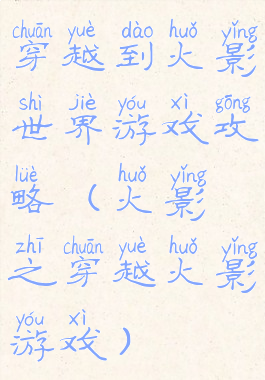 chuān yuè dào huǒ yǐng
穿越到火影
shì jiè yóu xì gōng
世界游戏攻
lüè huǒ yǐng
略（火影
zhī chuān yuè huǒ yǐng
之穿越火影
yóu xì
游戏）